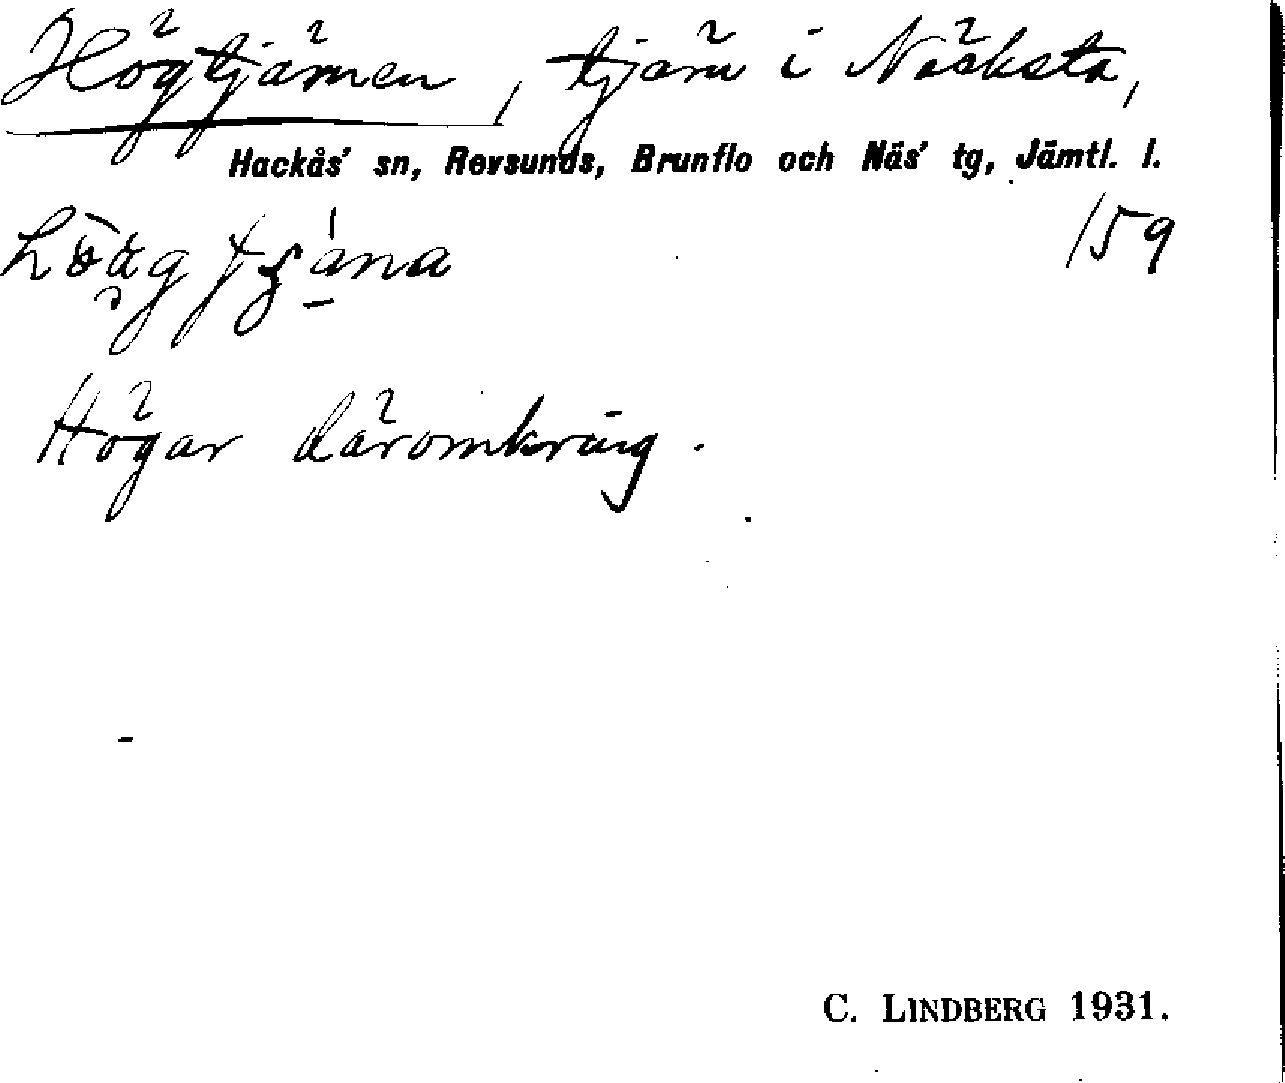 Högtjärnen, tjärn i Näcksta,
Hackås' sn, Revsunds, Brunflo och Näs' tg, Jämtl. l.
159
Högar däromkring.
C. LINDBERG 1931.